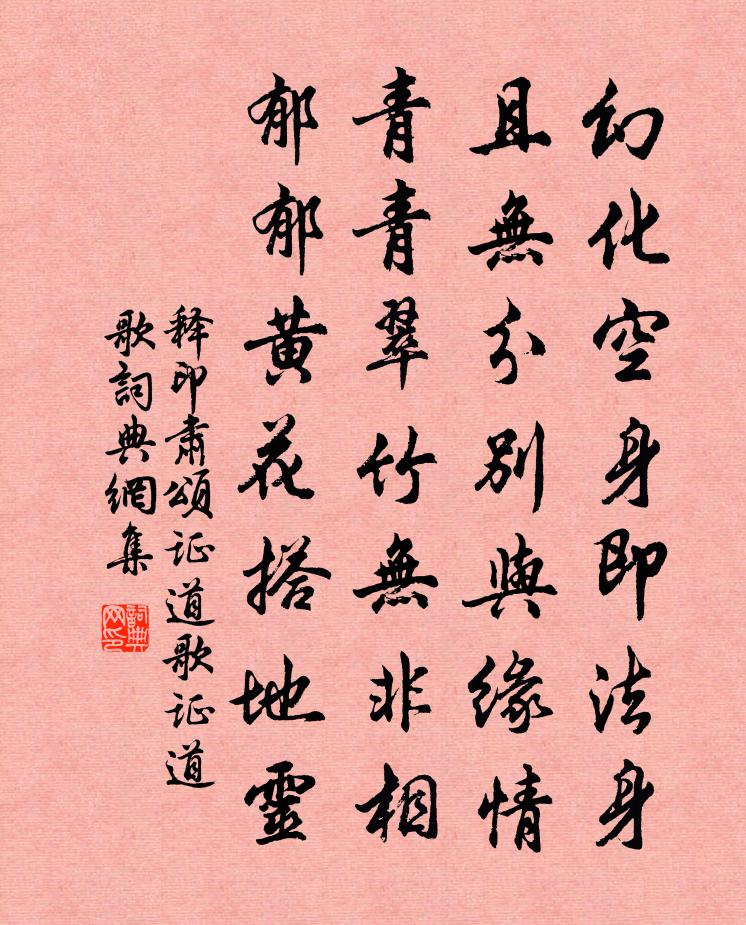 幻化空身即法身
且無分別與緣情
青青翠竹無非相
郁郁黄花搭地靈
释印肃頌证道歌证道
歌詞典網集
詞典网印